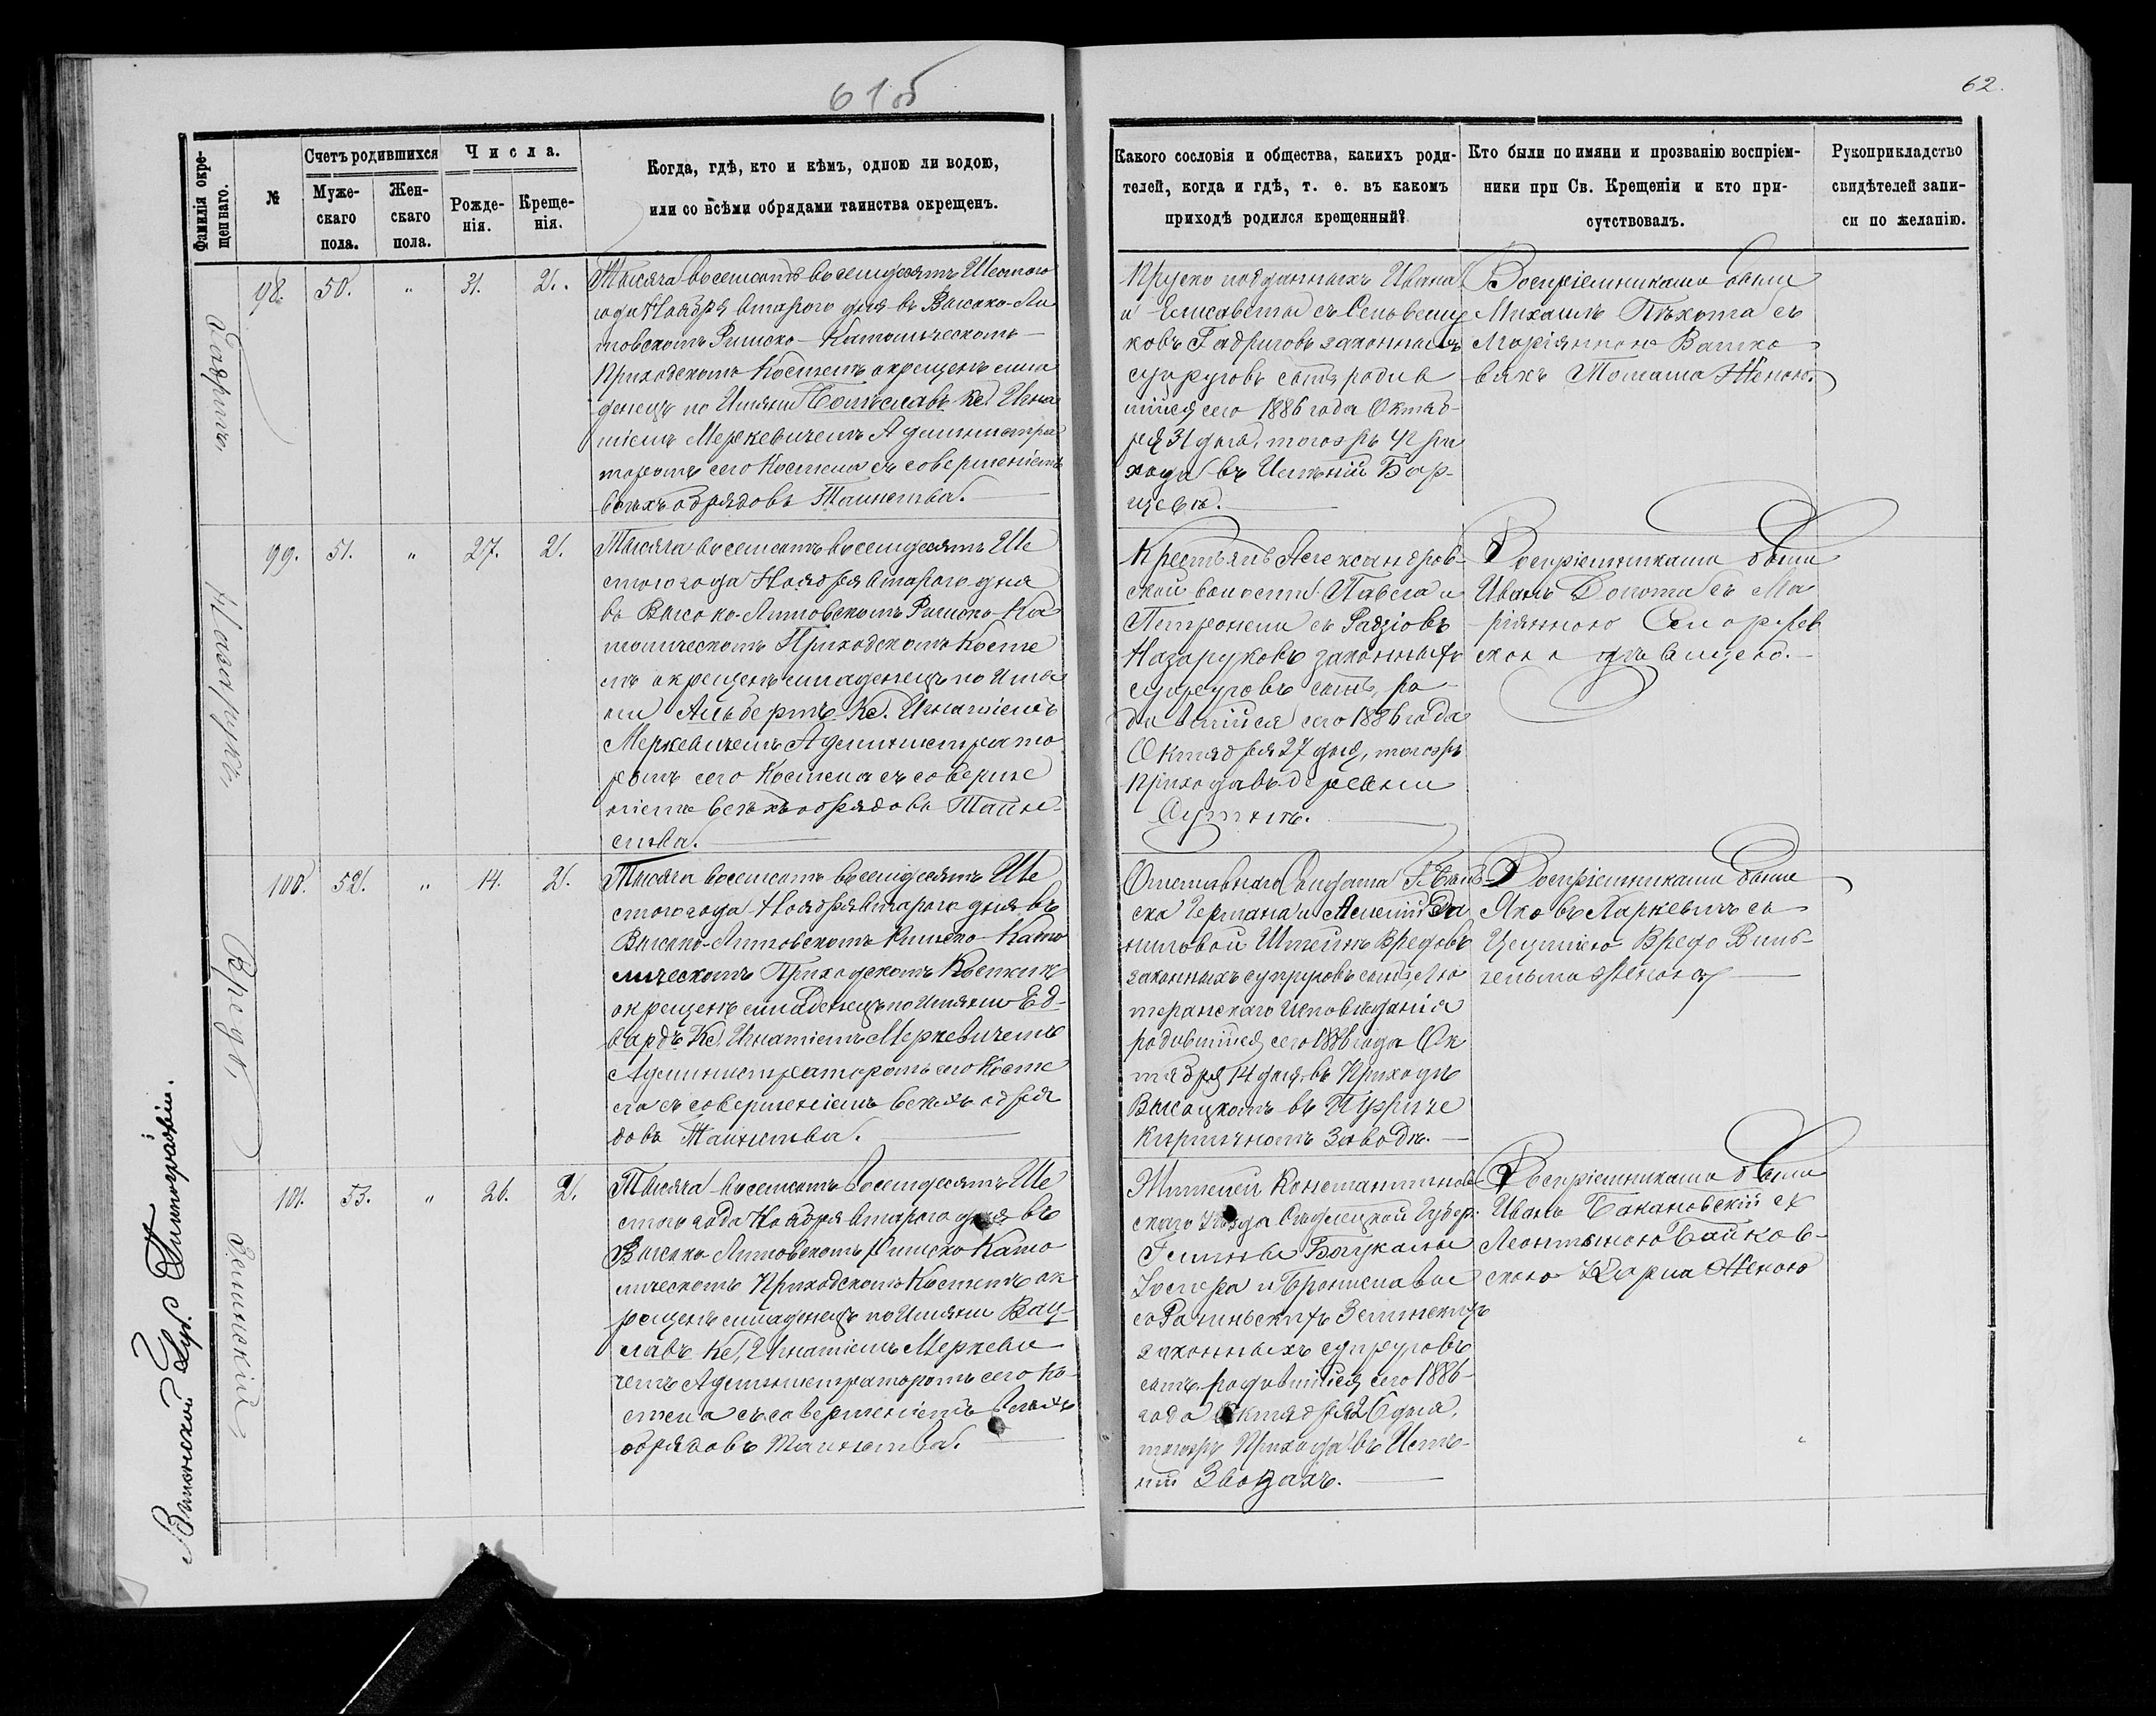 61об
62.
Фамилія окре-
щеннаго.
№
Счетъ родившихся
Муже-
скаго
пола.
Жен-
скаго
пола.
Числа.
Рожде-
нія.
Креще-
нія.
Когда, гдѣ, кто и кѣмъ, одною ли водою,
или со всѣми обрядами таинства окрещенъ.
Какого сословія и общества, какихъ роди-
телей, когда и гдѣ, т. е. въ какомъ
приходѣ родился крещенный?
Кто были по имяни и прозванію воспріем-
ники при Св. Крещеніи и кто при-
сутствовалъ.
Рукоприкладство
свидѣтелей запи-
си по желанію.
98. 50. " 31. 2.
Тысяча восемсотъ восемдесятъ Шестого
года Ноября втарого дня въ Высоко-Ли
товскомъ Римско-Католическомъ
Приходскомъ Костелѣ окрещенъ мла
денецъ по Имяни Болѣславъ Кс. Игна
тіемъ Меркевичемъ Администра
торомъ сего Костела съ совершеніемъ
всѣхъ обрядовъ Таинства.
Пруско подданныхъ Ивана
и Елисаветы съ
ковъ законныхъ
супруговъ сынъ родив
шійся сего 1886 года Октяб-
ря 31 дня, тогожъ При
хода въ Имѣніи
Воспріемниками были
Михаилъ Пѣхота съ
Маріянною
Томаша Женою.
Назарукъ
99. 51. " 27. 2.
Тысяча восемсотъ восемдесятъ Ше
стого года Ноября втарого дня
въ Высоко-Литовскомъ Римско-Ка
толическомъ Приходскомъ Косте
лѣ окрещенъ младенецъ по Имя
ни Альбертъ Кс. Игнатіемъ
Меркевичемъ Администрато
ромъ сего Костела съ соверше
ніемъ всѣхъ обрядовъ Таин
ства.
Крестьянъ Александров-
ской волости Павела и
Петронели съ Радзіовъ
Назаруковъ законныхъ
супруговъ сынъ, ро
дившійся сего 1886 года
Октября 27 дня, тогожъ
прихода въ деревни
Воспріемниками были
Иванъ съ Ма
ріянною
Вредо
100. 52. " 14. 2.
Тысяча восемсотъ восемдесятъ Ше
стого года Ноября втарого дня въ
Высоко-Литовскомъ Римско-Като
лическомъ Приходскомъ Костелѣ
окрещенъ младенецъ по Имяни Ед-
вардъ Кс. Игнатіемъ Меркевичемъ
Администраторомъ сего Косте
ла съ совершеніемъ всѣхъ обря
довъ Таинства.
Отставнаго Солдата
Германа и
Штейнъ Вредовъ
законныхъ супруговъ сынъ, Лю
теранскаго Исповѣданія
родившійся сего 1886 года Ок
тября 14 дня, въ Приходѣ
Высоцкомъ въ
Кирпичномъ Заводѣ.
Воспріемниками были
Яковъ Ларкевичъ съ
Цециліею Вредо Виль-
гельма Женою
Зелинскій
101. 53. " 26. 2.
Тысяча восемсотъ восемдесятъ Ше
стого года Ноября втарого дня въ
Высоко-Литовскомъ Римско Като
лическомъ Приходскомъ Костелѣ ок
рещенъ младенецъ по Имяни Вац-
лавъ Кс. Игнатіемъ Меркеви
чемъ Администраторомъ сего Ко-
стела съ совершеніемъ всѣхъ
обрядовъ Таинства.
Жителей Константинов-
скаго Уѣзда Сѣдлецкой Губер.
Гмины
и Брониславы
Зелинскихъ
законныхъ супруговъ
сынъ, родившійся сего 1886
года Октября 26 дня,
тогожъ Прихода въ Имѣ-
ніи
Воспріемниками были
Иванъ Бакановскій съ
Леонтыною Байков-
скою Женою
Виленской Губ. Типографіи.